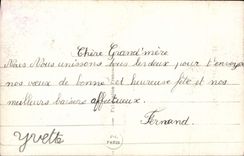 Chère Grand'mère
Nous Nous unissons tous les deux pour t'envoyer
nos vœux de bonne et heureuse fête et nos
meilleurs baisers affectueux.
Fernand.
Yvette
PARIS